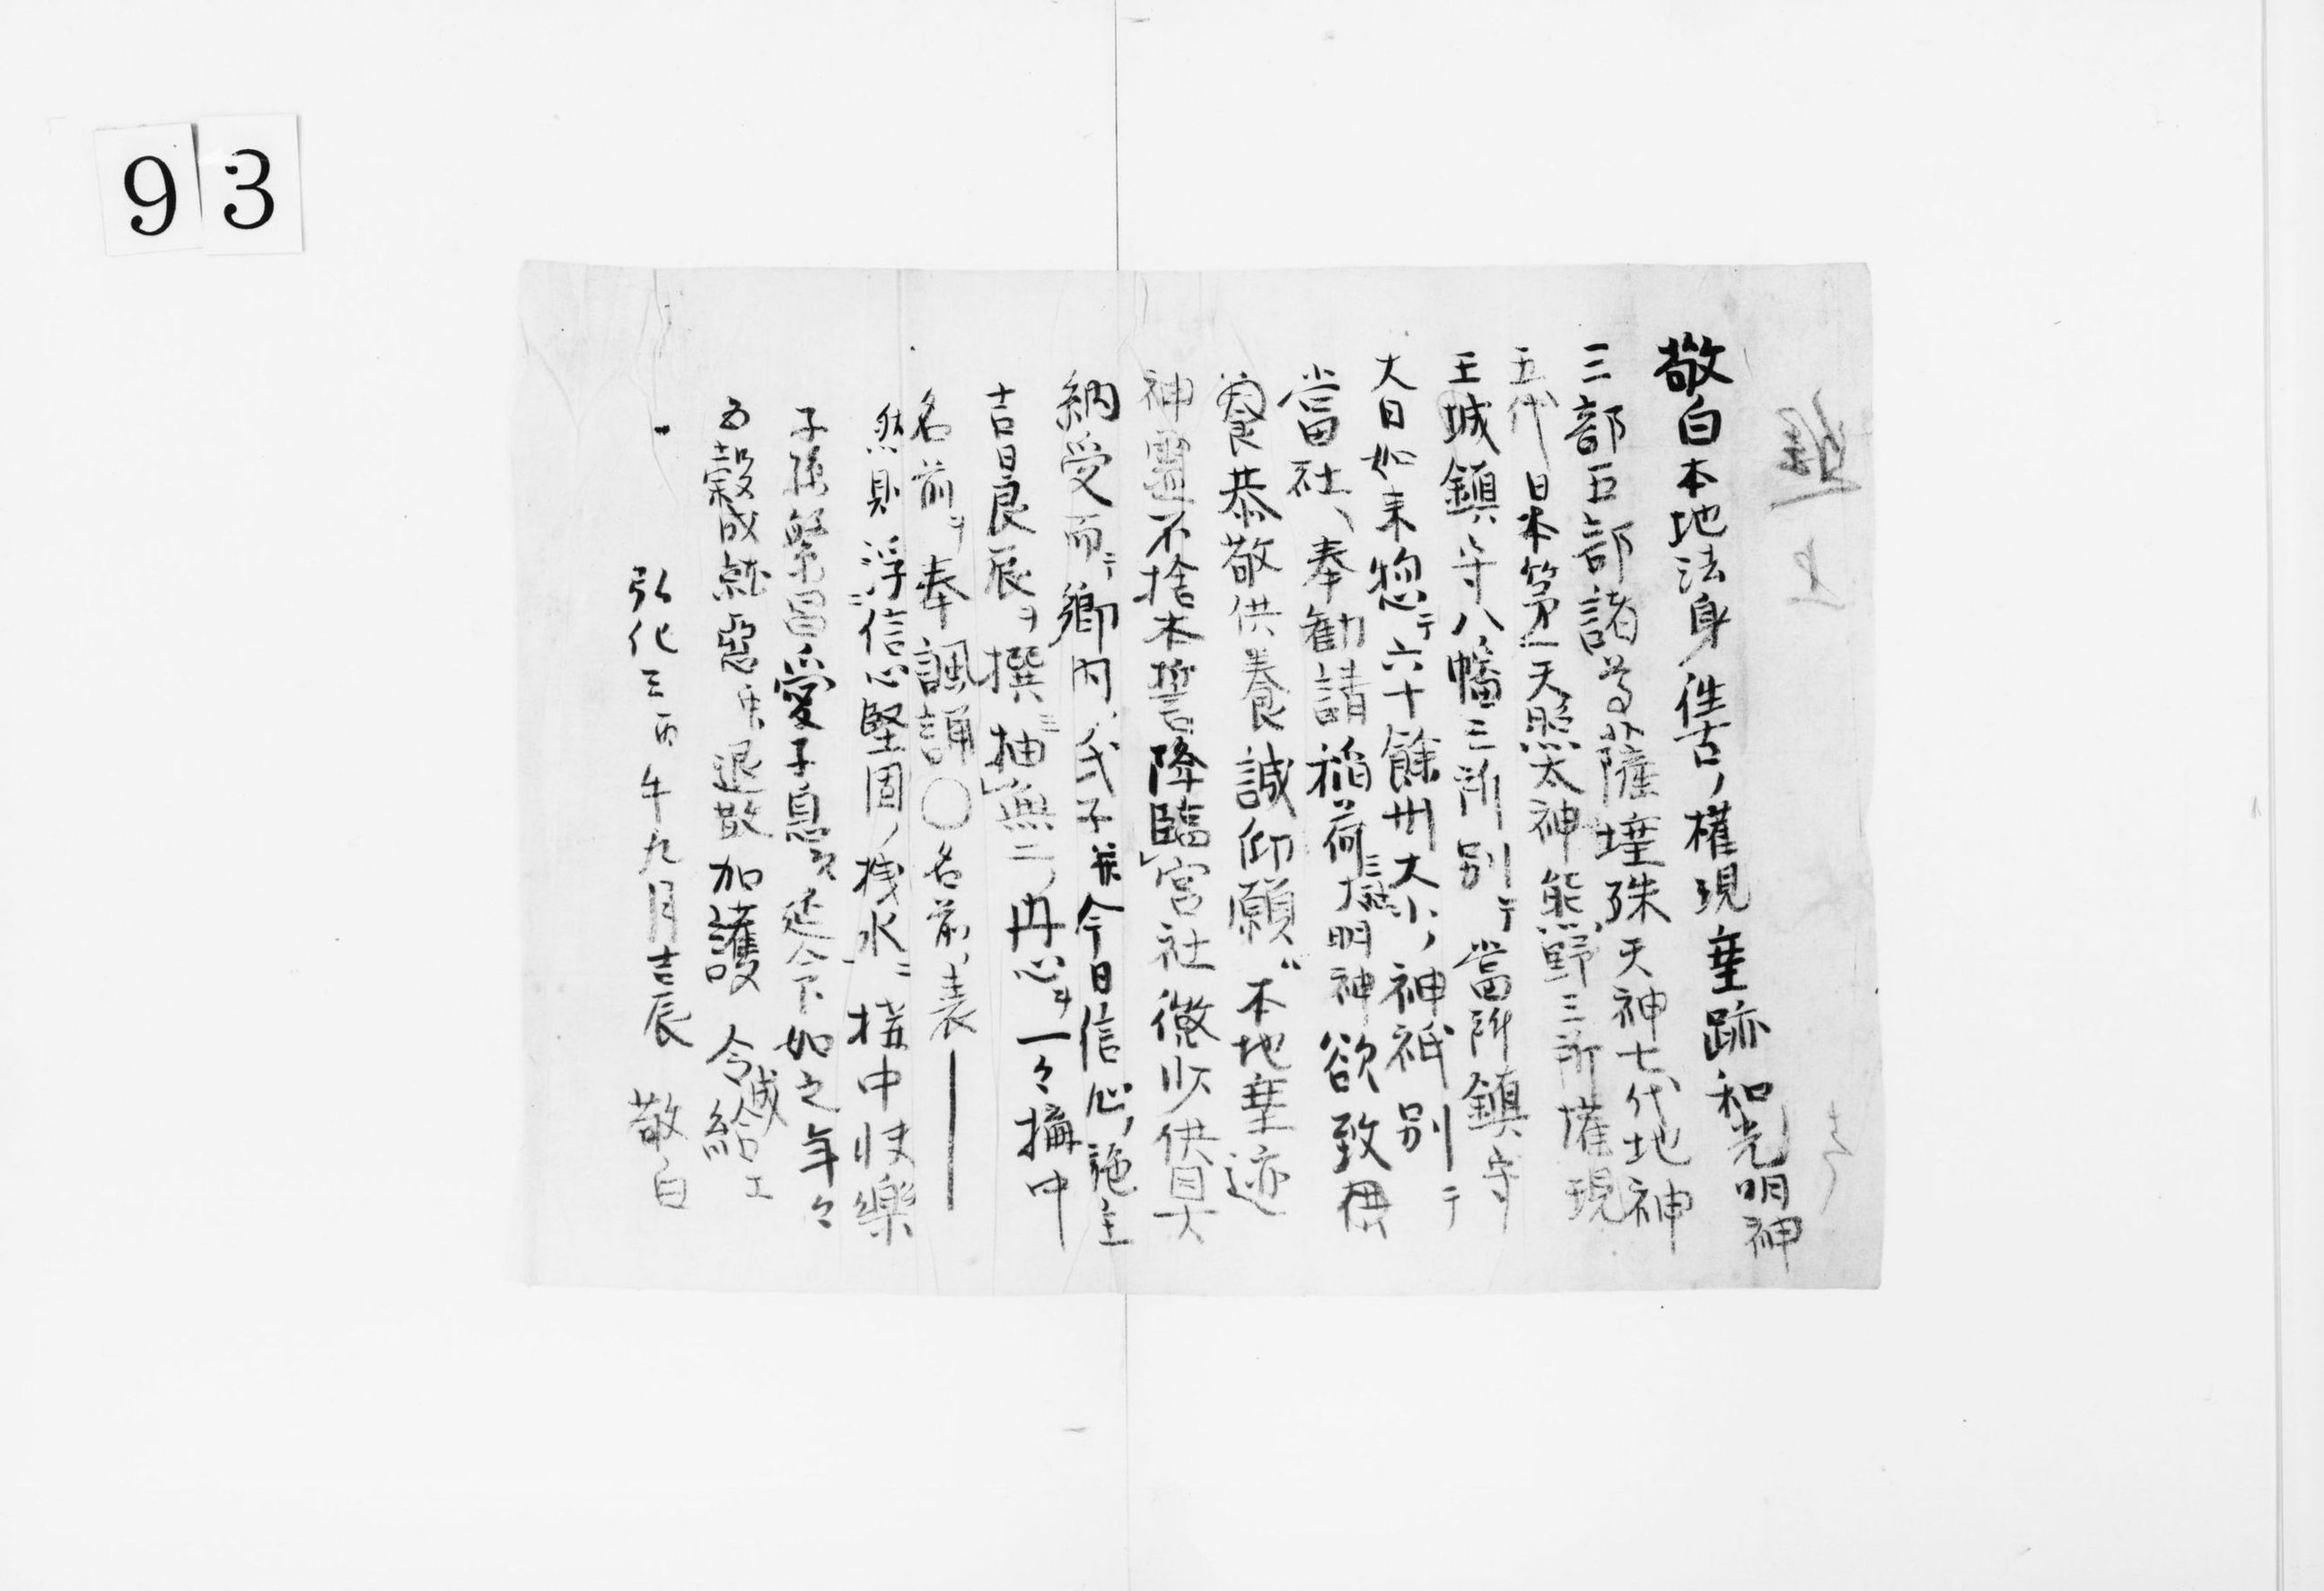 93
敬白本地法身往古ノ權現垂跡和光明神
三部五部諸尊薩埵殊天神七代地神
五代日本第一天照太神熊野三所權現
王城鎮守八幡三所別テ當所鎮守
大日如来惣テ六十餘州大小ノ神祇別テ
當社ニ奉勸請稲荷三狐大明神欲致供
養恭敬供養誠仰願ハ本地垂迹
神靈不捨本誓降臨宮社微少供具大
納受而テ郷内氏子并今日信心ノ施主
吉日良辰ヲ撰ミ抽無二ノ丹心ヲ一々搆中
名前ヲ奉諷誦〇名前ハ表
然則浮信心堅固ノ棧水ニ搆中快樂
子孫繁昌愛子息災延命如之年々
五穀成就惡虫退散加護令減給エ
弘化三丙午九月吉辰 敬白